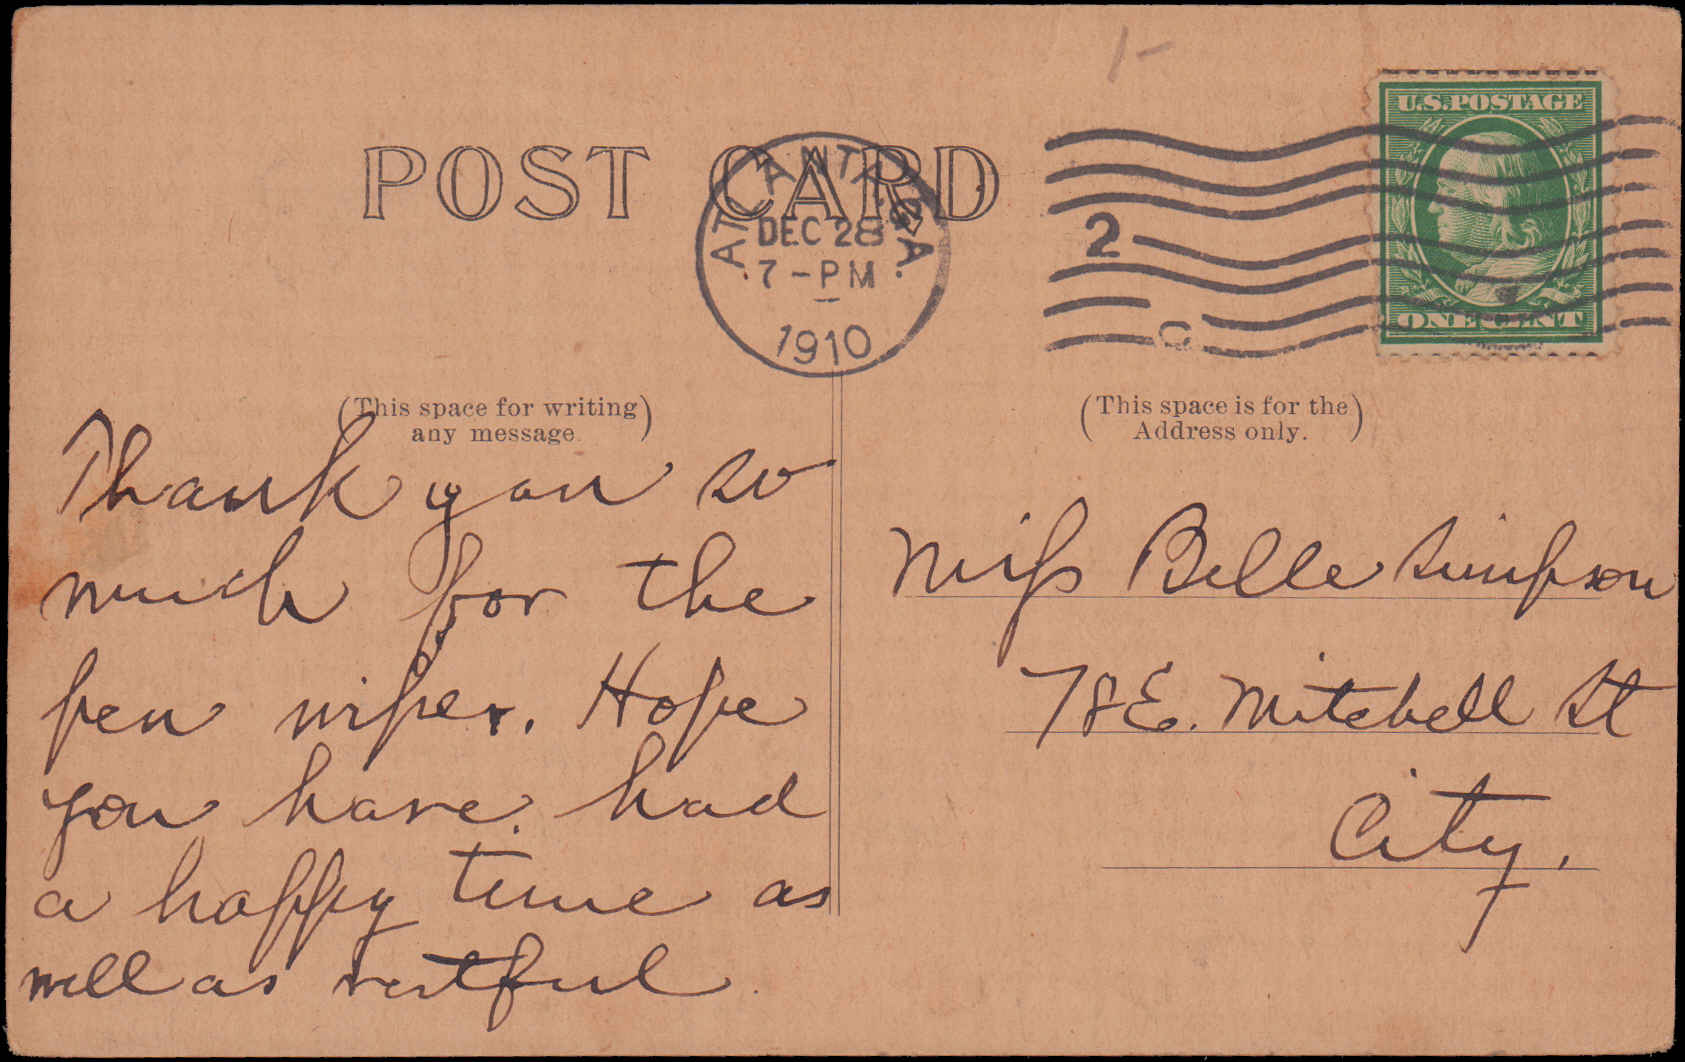 1-
U.S.POSTAGE
POST CARD
ATLANTA, GA.
DEC 28
7-PM
1910
2
C
ONE CENT
(This space for writing
any message.)
(This space is for the
Address only.)
Thank you so
much for the
pen wiper. Hope
you have had
a happy time as
well as restful.
Miss Belle Simpson
78 E. Mitchell St
City.